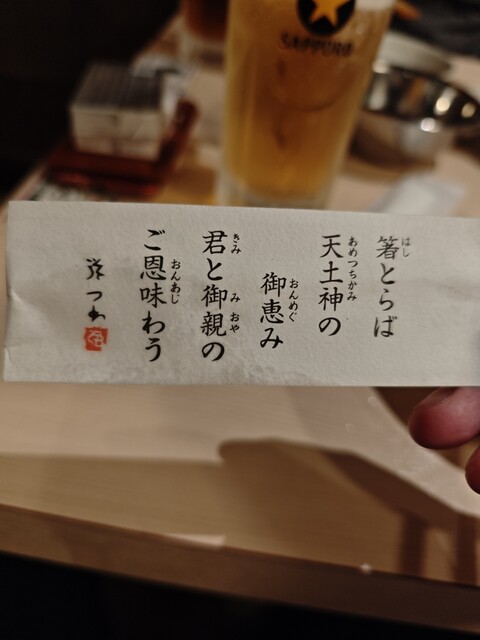 箸とらば
天土神の
御恵み
君と御親の
ご恩味わう
はし
あめつちかみ
おんめぐ
きみ
み おや
おんあじ
SAPPORO